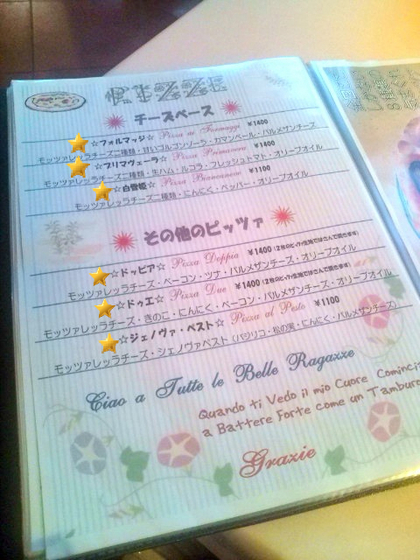 チーズベース
☆フォルマッジ☆ Pizza ai Formaggi ¥1400
モッツァレッラチーズ二種類・甘いゴルゴンゾーラ・カマンベール・パルメザンチーズ
☆プリマヴェーラ☆ Pizza Primavera ¥1400
モッツァレッラチーズ二種類・生ハム・ルコラ・フレッシュトマト・オリーブオイル
☆白雪姫☆ Pizza Biancaneve ¥1100
モッツァレッラチーズ二種類・にんにく・ペッパー・オリーブオイル
その他のピッツァ
☆ドッピア☆ Pizza Doppia ¥1400 (2枚のピッツァ生地ではさんで焼きます)
モッツァレッラチーズ・ベーコン・ツナ・パルメザンチーズ・オリーブオイル
☆ドゥエ☆ Pizza Due ¥1400 (2枚のピッツァ生地ではさんで焼きます)
モッツァレッラチーズ・きのこ・にんにく・ベーコン・パルメザンチーズ・オリーブオイル
☆ジェノヴァ・ペスト☆ Pizza al Pesto ¥1100
モッツァレッラチーズ・ジェノヴァペスト (バジリコ・松の実・にんにく・パルメザンチーズ)
Ciao a Tutte le Belle Ragazze
Quando ti Vedo il mio Cuore Cominci
a Battere Forte come un Tambur
Grazie